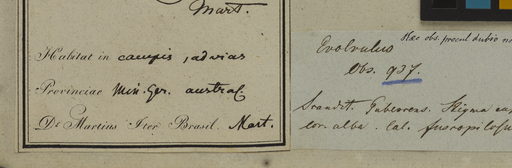 Mart.
Habitat in campis, ad vias
Provinciae Min. Ger. austral.
De Martius Iter Brasil. Mart.
Hec obs. procul dubio
Evolvulus
Obs. 937.
Scandit. Pubescens. Stigma
cor. alba. Cal. fuscopilosu